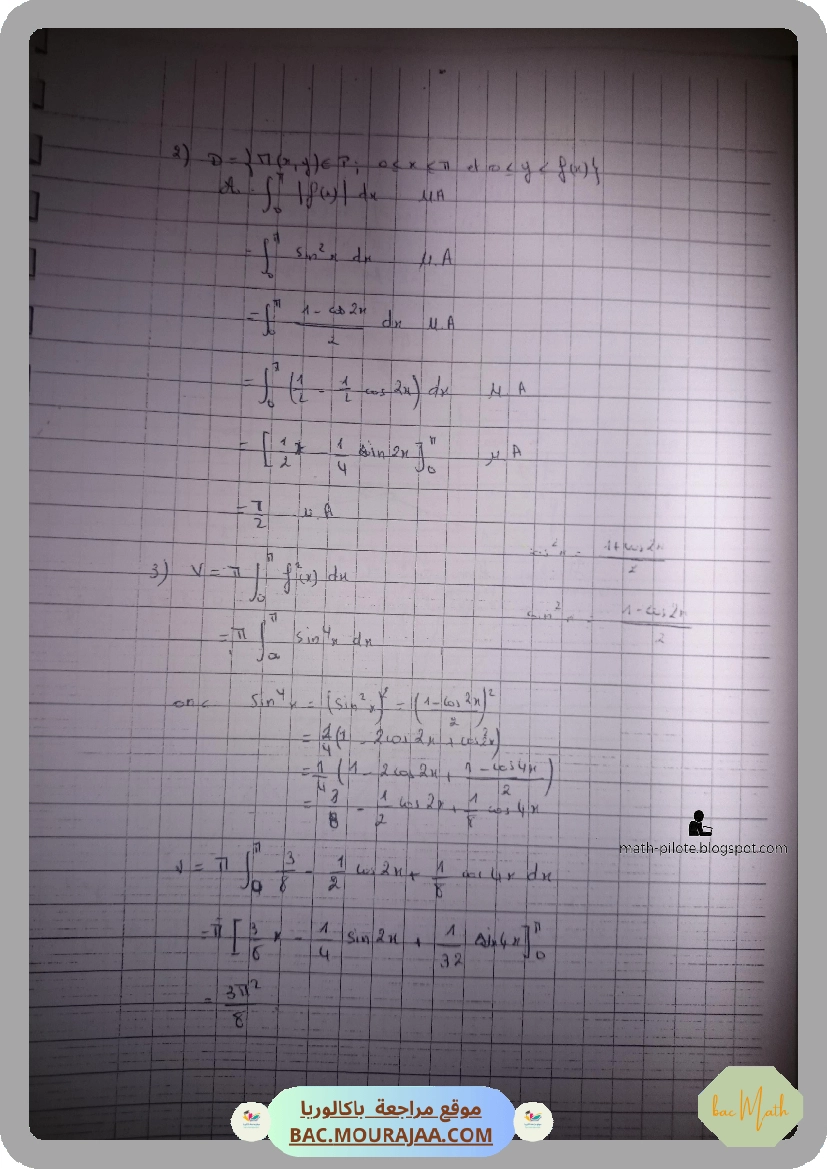 2) D = {M(x,y) ∈ P; 0 ≤ x ≤ π et 0 ≤ y ≤ f(x)}
A = ∫₀^π |f(x)| dx μA
= ∫₀^π sin²x dx μ.A
= ∫₀^π (1 - cos 2x)/2 dx μ.A
= ∫₀^π (1/2 - 1/2 cos 2x) dx μ.A
= [1/2 x - 1/4 sin 2x]₀^π μ.A
= π/2 μ.A
cos²x = (1 + cos 2x)/2
3) V = π ∫₀^π f²(x) dx
sin²x = (1 - cos 2x)/2
= π ∫₀^π sin⁴x dx
on c sin⁴x = (sin²x)² = ((1 - cos 2x)/2)²
= 1/4 (1 - 2cos 2x + cos²2x)
= 1/4 (1 - 2cos 2x + (1 - cos 4x)/2)
= 3/8 - 1/2 cos 2x + 1/8 cos 4x
math-pilote.blogspot.com
V = π ∫₀^π 3/8 - 1/2 cos 2x + 1/8 cos 4x dx
= π [3/8 x - 1/4 sin 2x + 1/32 sin 4x]₀^π
= 3π²/8
موقع مراجعة باكالوريا
BAC.MOURAJAA.COM
bac Math